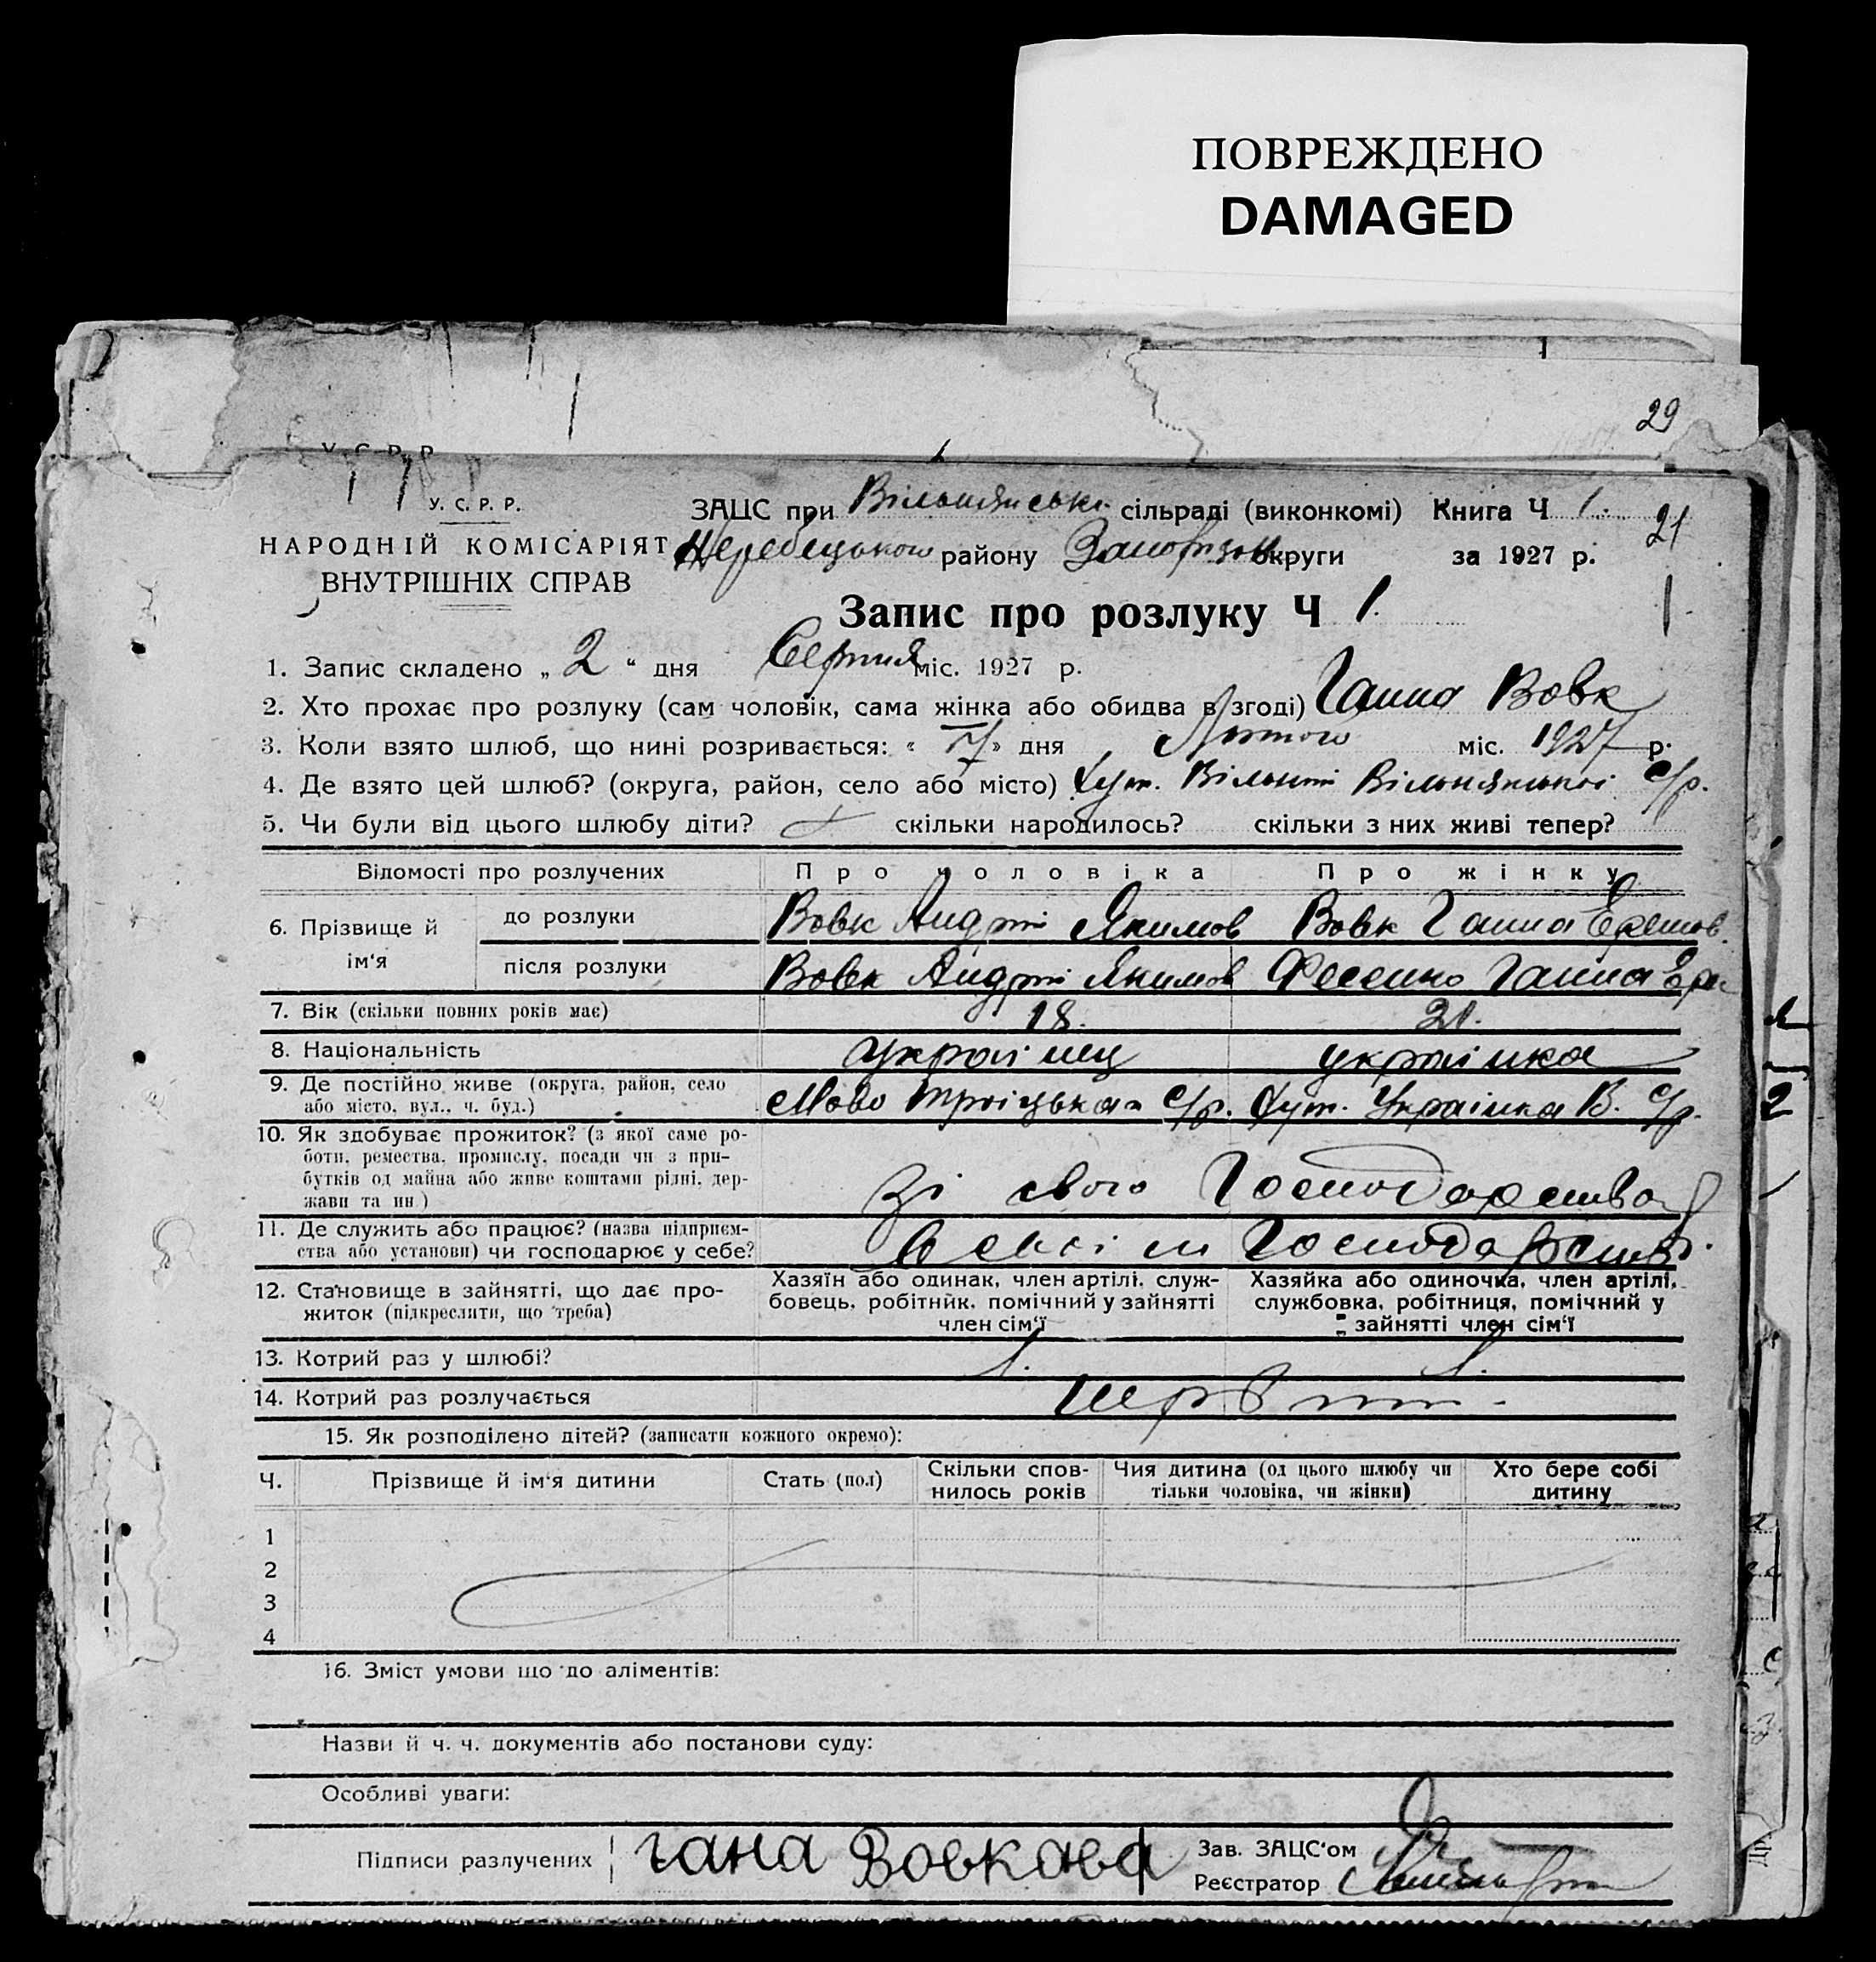 ПОВРЕЖДЕНО
DAMAGED
29
У. С. Р. Р.
У. С. Р. Р.
ЗАЦС при Вільнянські сільраді (виконкомі) Книга Ч 1. 21
НАРОДНІЙ КОМІСАРІЯТ
ВНУТРІШНІХ СПРАВ
Жеребецького району округи за 1927 р.
Запис про розлуку Ч 1.
1. Запис складено „ 2 “ дня Серпня міс. 1927 р.
2. Хто прохає про розлуку (сам чоловік, сама жінка або обидва в згоді) Ганна Вовк
3. Коли взято шлюб, що нині розривається: « » дня Лютого міс. 1927 р.
4. Де взято цей шлюб? (округа, район, село або місто) Хут. Вільний Вільнянської С/р.
5. Чи були від цього шлюбу діти? скільки народилось? скільки з них живі тепер?
Відомості про розлучених Про чоловіка Про жінку
6. Прізвище й ім‘я
до розлуки Вовк Андрій Якимов Вовк Ганна
після розлуки Вовк Андрій Якимов Фесенко Ганна
7. Вік (скільки повних років має) 18. 21.
8. Національність українец українка
9. Де постійно живе (округа, район, село
або місто, вул., ч. буд.) Ново Троіцька С/р. Хут. Украінка В. С/р.
10. Як здобуває прожиток? (з якої саме ро-
боти, ремества, промислу, посади чи з при-
бутків од майна або живе коштами рідні, дер-
жави та ин.) Зі свого Господарства
11. Де служить або працює? (назва підприєм-
ства або установи) чи господарює у себе? В своїм Господарстві.
12. Становище в зайнятті, що дає про-
житок (підкреслити, що треба)
Хазяїн або одинак, член артілі, служ-
бовець, робітник, помічний у зайнятті
член сім‘ї
Хазяйка або одиночка, член артілі,
службовка, робітниця, помічний у
зайнятті член сім‘ї
13. Котрий раз у шлюбі? 1. 1.
14. Котрий раз розлучається первий.
15. Як розподілено дітей? (записати кожного окремо):
Ч. Прізвище й ім‘я дитини Стать (пол) Скільки спов-
нилось років Чия дитина (од цього шлюбу чи
тільки чоловіка, чи жінки) Хто бере собі
дитину
1
2
3
4
16. Зміст умови що до аліментів:
Назви й ч. ч. документів або постанови суду:
Особливі уваги:
Підписи разлучених гана Вовкава
Зав. ЗАЦС‘ом
Реєстратор